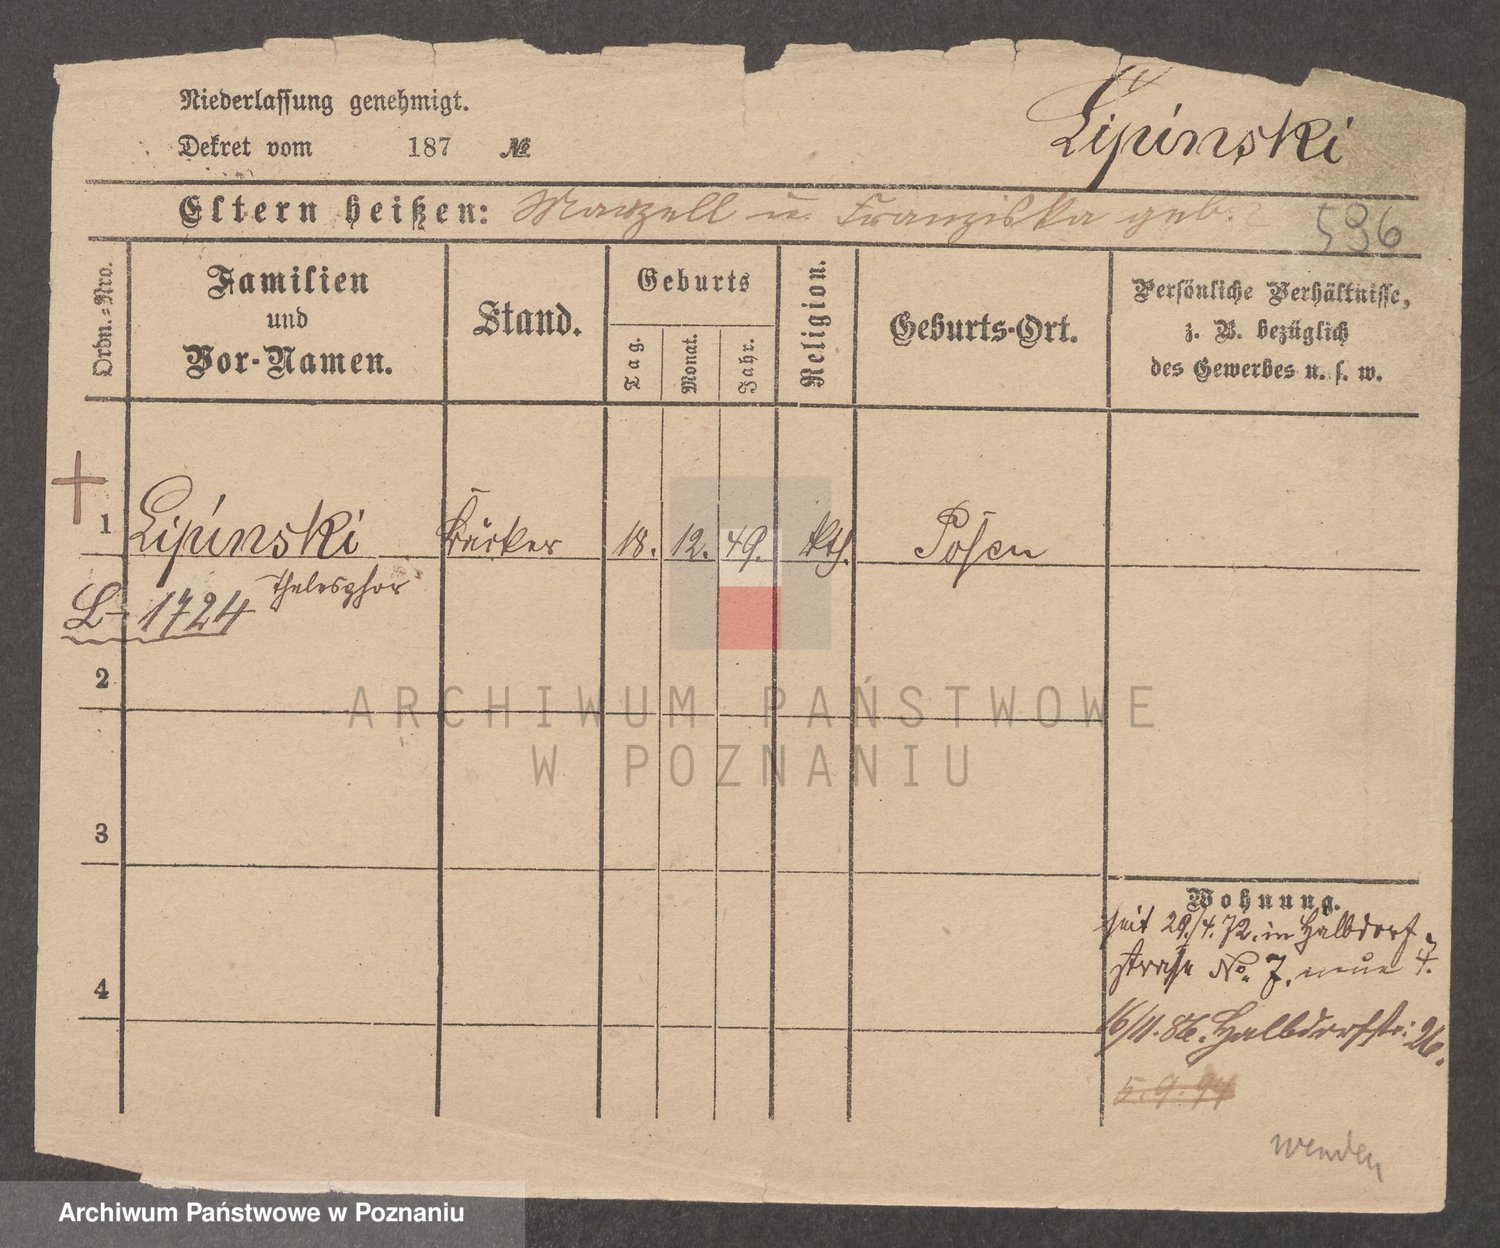 Niederlassung genehmigt.
Dekret vom 187 №
Lipinski
Eltern heißen: Marzell u. Franziska geb. ?
596
Ordn.-Nro.
Familien
und
Vor-Namen.
Stand.
Geburts
Tag.
Monat.
Jahr.
Religion.
Geburts-Ort.
Persönliche Verhältnisse,
z. B. bezüglich
des Gewerbes u. s. w.
1 Lipinski Bäcker 18. 12. 49. kth. Posen
Thelesphor
L 1724
2
3
4
Wohnung.
seit 29/4.72. in Halbdorf-
straße No. 7. neue 4.
16/11.86. Halbdorfstr: 26.
5.9.94
wenden
ARCHIWUM PAŃSTWOWE
W POZNANIU
Archiwum Państwowe w Poznaniu